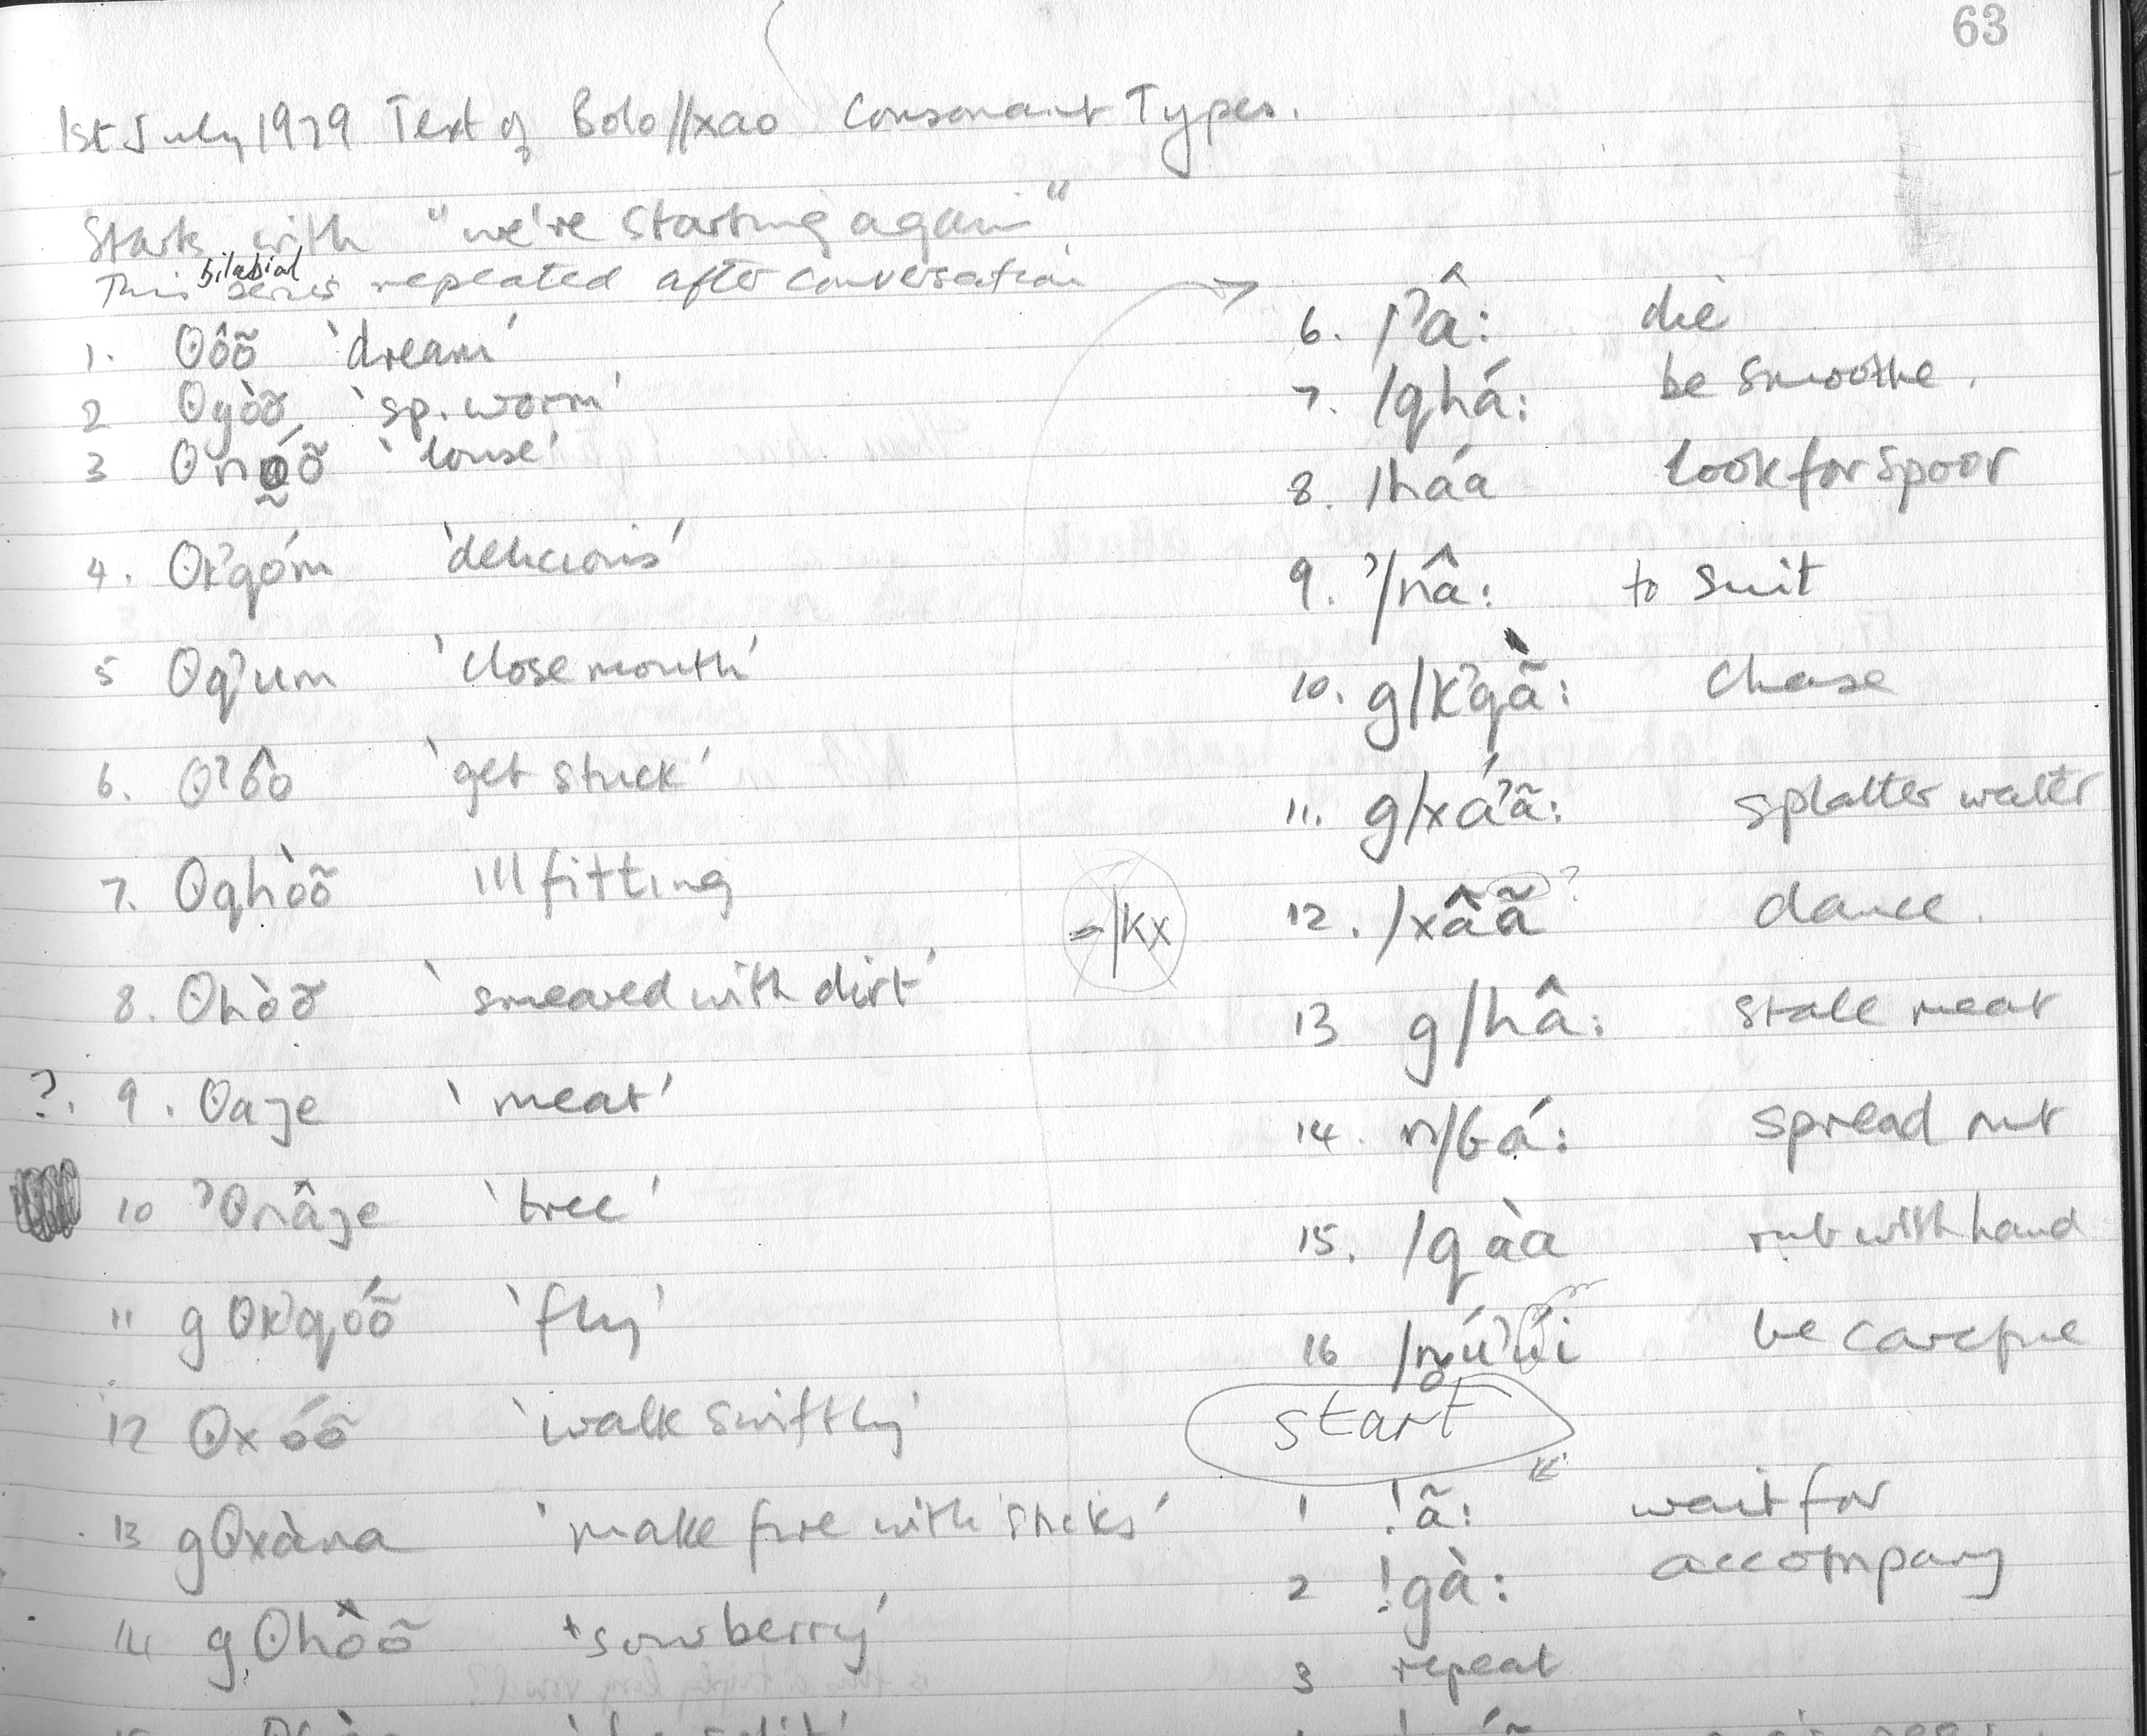 63
1st July 1979 Text of Bolo //xao Consonant Types.
Starts with "we're starting again"
This bilabial series repeated after conversation
1. ʘôõ 'dream'
2 ʘgòõ 'sp. worm'
3 ʘnó̰õ 'louse'
4. ʘk'qóm 'delicious'
5 ʘq'um 'close mouth'
6. ʘʔôo 'get stuck'
7. ʘqhòõ ill fitting
8. ʘhòõ 'smeared with dirt'
?. 9. ʘaɟe 'meat'
10 ʔʘnâɟe 'tree'
11 gʘk'qóõ 'fly'
12 ʘxóõ 'walk swiftly'
13 gʘxàna 'make fire with sticks'
14 gʘhòõ + sourberry'
6. /ʔâ: die
7. /qhá: be smoothe.
8. /háa look for spoor
9. ʔ/nâ: to suit
10. g/k'qã̀: chase
11. g/xáʔã: splatter water
=/kx
12. /xâã ? dance.
13 g/hâ: stale meat
14. n/ɢá: spread out
15. /qàa rub with hand
16 /n̥úʔúi be careful
start
1 !ã: wait for
2 !gà: accompany
3 repeat